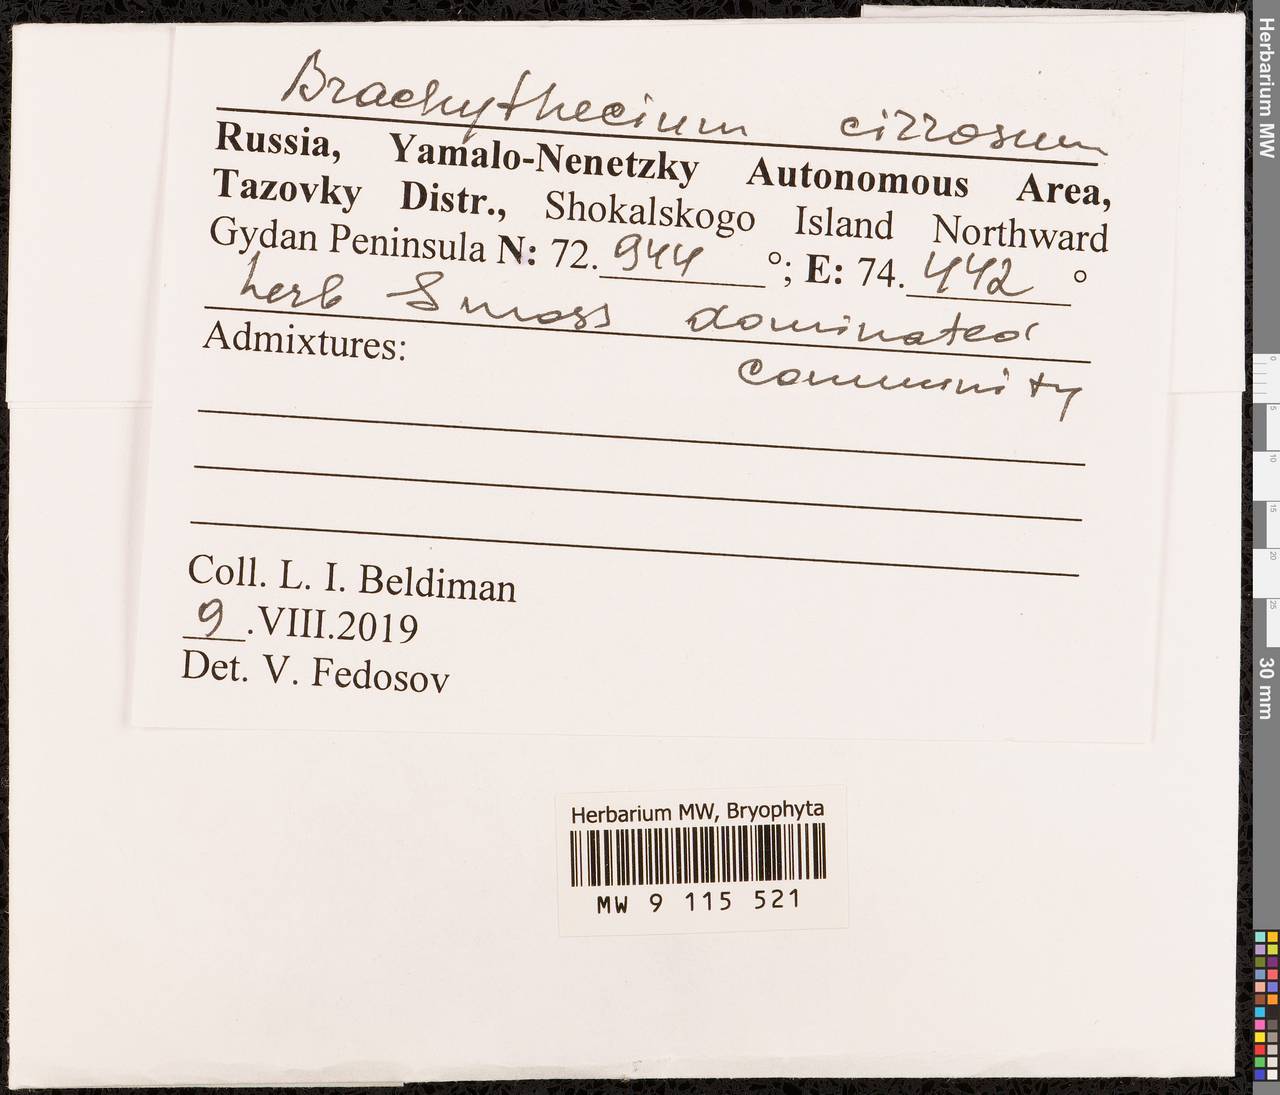 Brachythecium cirrosum
Russia, Yamalo-Nenetzky Autonomous Area,
Tazovky Distr., Shokalskogo Island Northward
Gydan Peninsula N: 72.944 °; E: 74.442 °
herb & moss dominated
community
Admixtures:
Coll. L. I. Beldiman
9.VIII.2019
Det. V. Fedosov
Herbarium MW, Bryophyta
MW 9 115 521
Herbarium MW
0
5
10
15
20
25
30 mm